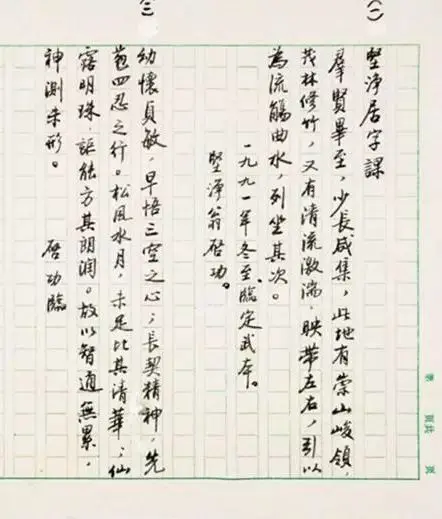 (一)
堅淨居字課
羣賢畢至，少長咸集，此地有崇山峻領，
茂林修竹，又有清流激湍，映帶左右，引以
為流觴曲水，列坐其次。
一九九一年冬至，臨定武本。
堅淨翁啓功。
(三)
幼懷貞敏，早悟三空之心；長契精神，先
苞四忍之行。松風水月，未足比其清華；仙
露明珠，詎能方其朗潤。故以智通無累，
神測未形。 啓功臨